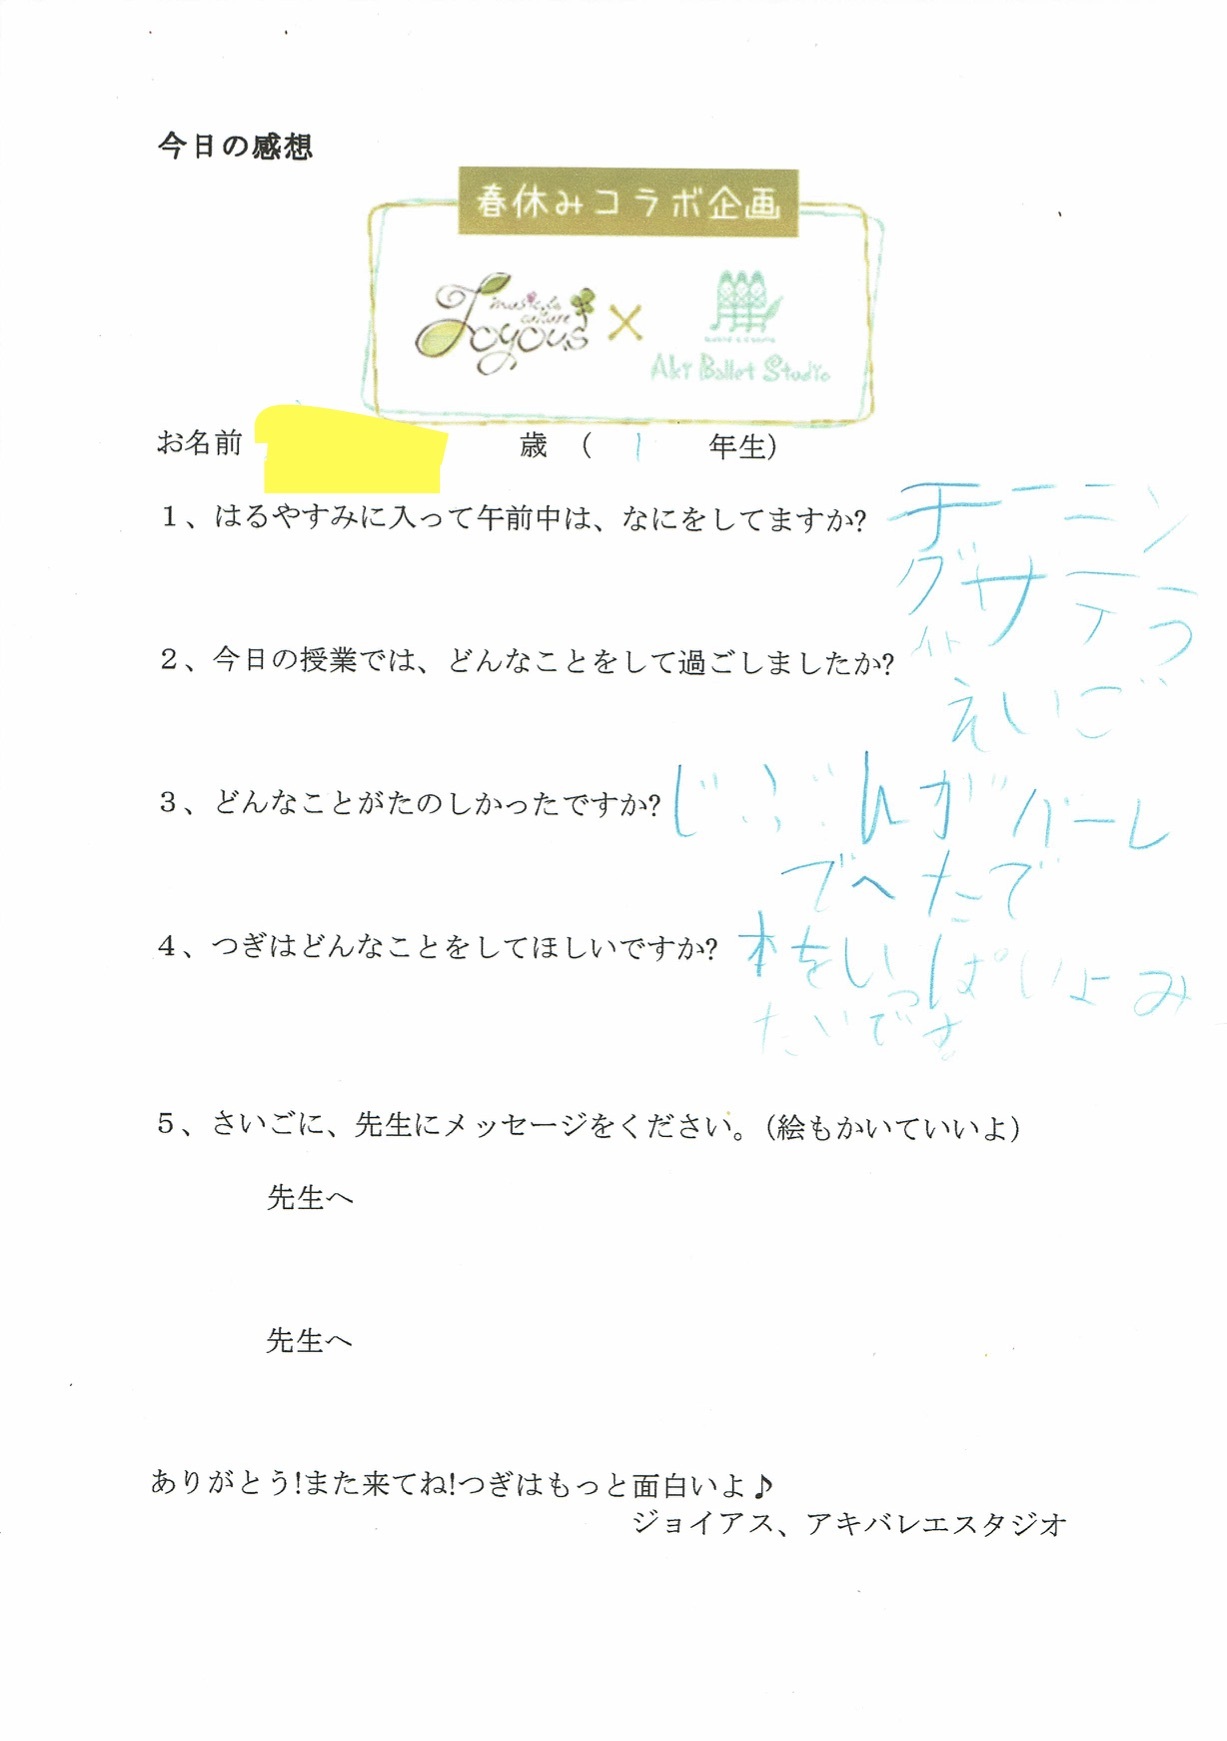 今日の感想
春休みコラボ企画
Joyous
music & culture
×
Aki Ballet Studio
お名前 歳 ( 1 年生)
1、はるやすみに入って午前中は、なにをしてますか?
モーニン
グサテラ
イト
2、今日の授業では、どんなことをして過ごしましたか?
えいご
3、どんなことがたのしかったですか? じぶんがバーレ
でへたで
4、つぎはどんなことをしてほしいですか? 本をいっぱいよみ
たいです
5、さいごに、先生にメッセージをください。(絵もかいていいよ)
先生へ
先生へ
ありがとう!また来てね!つぎはもっと面白いよ♪
ジョイアス、アキバレエスタジオ